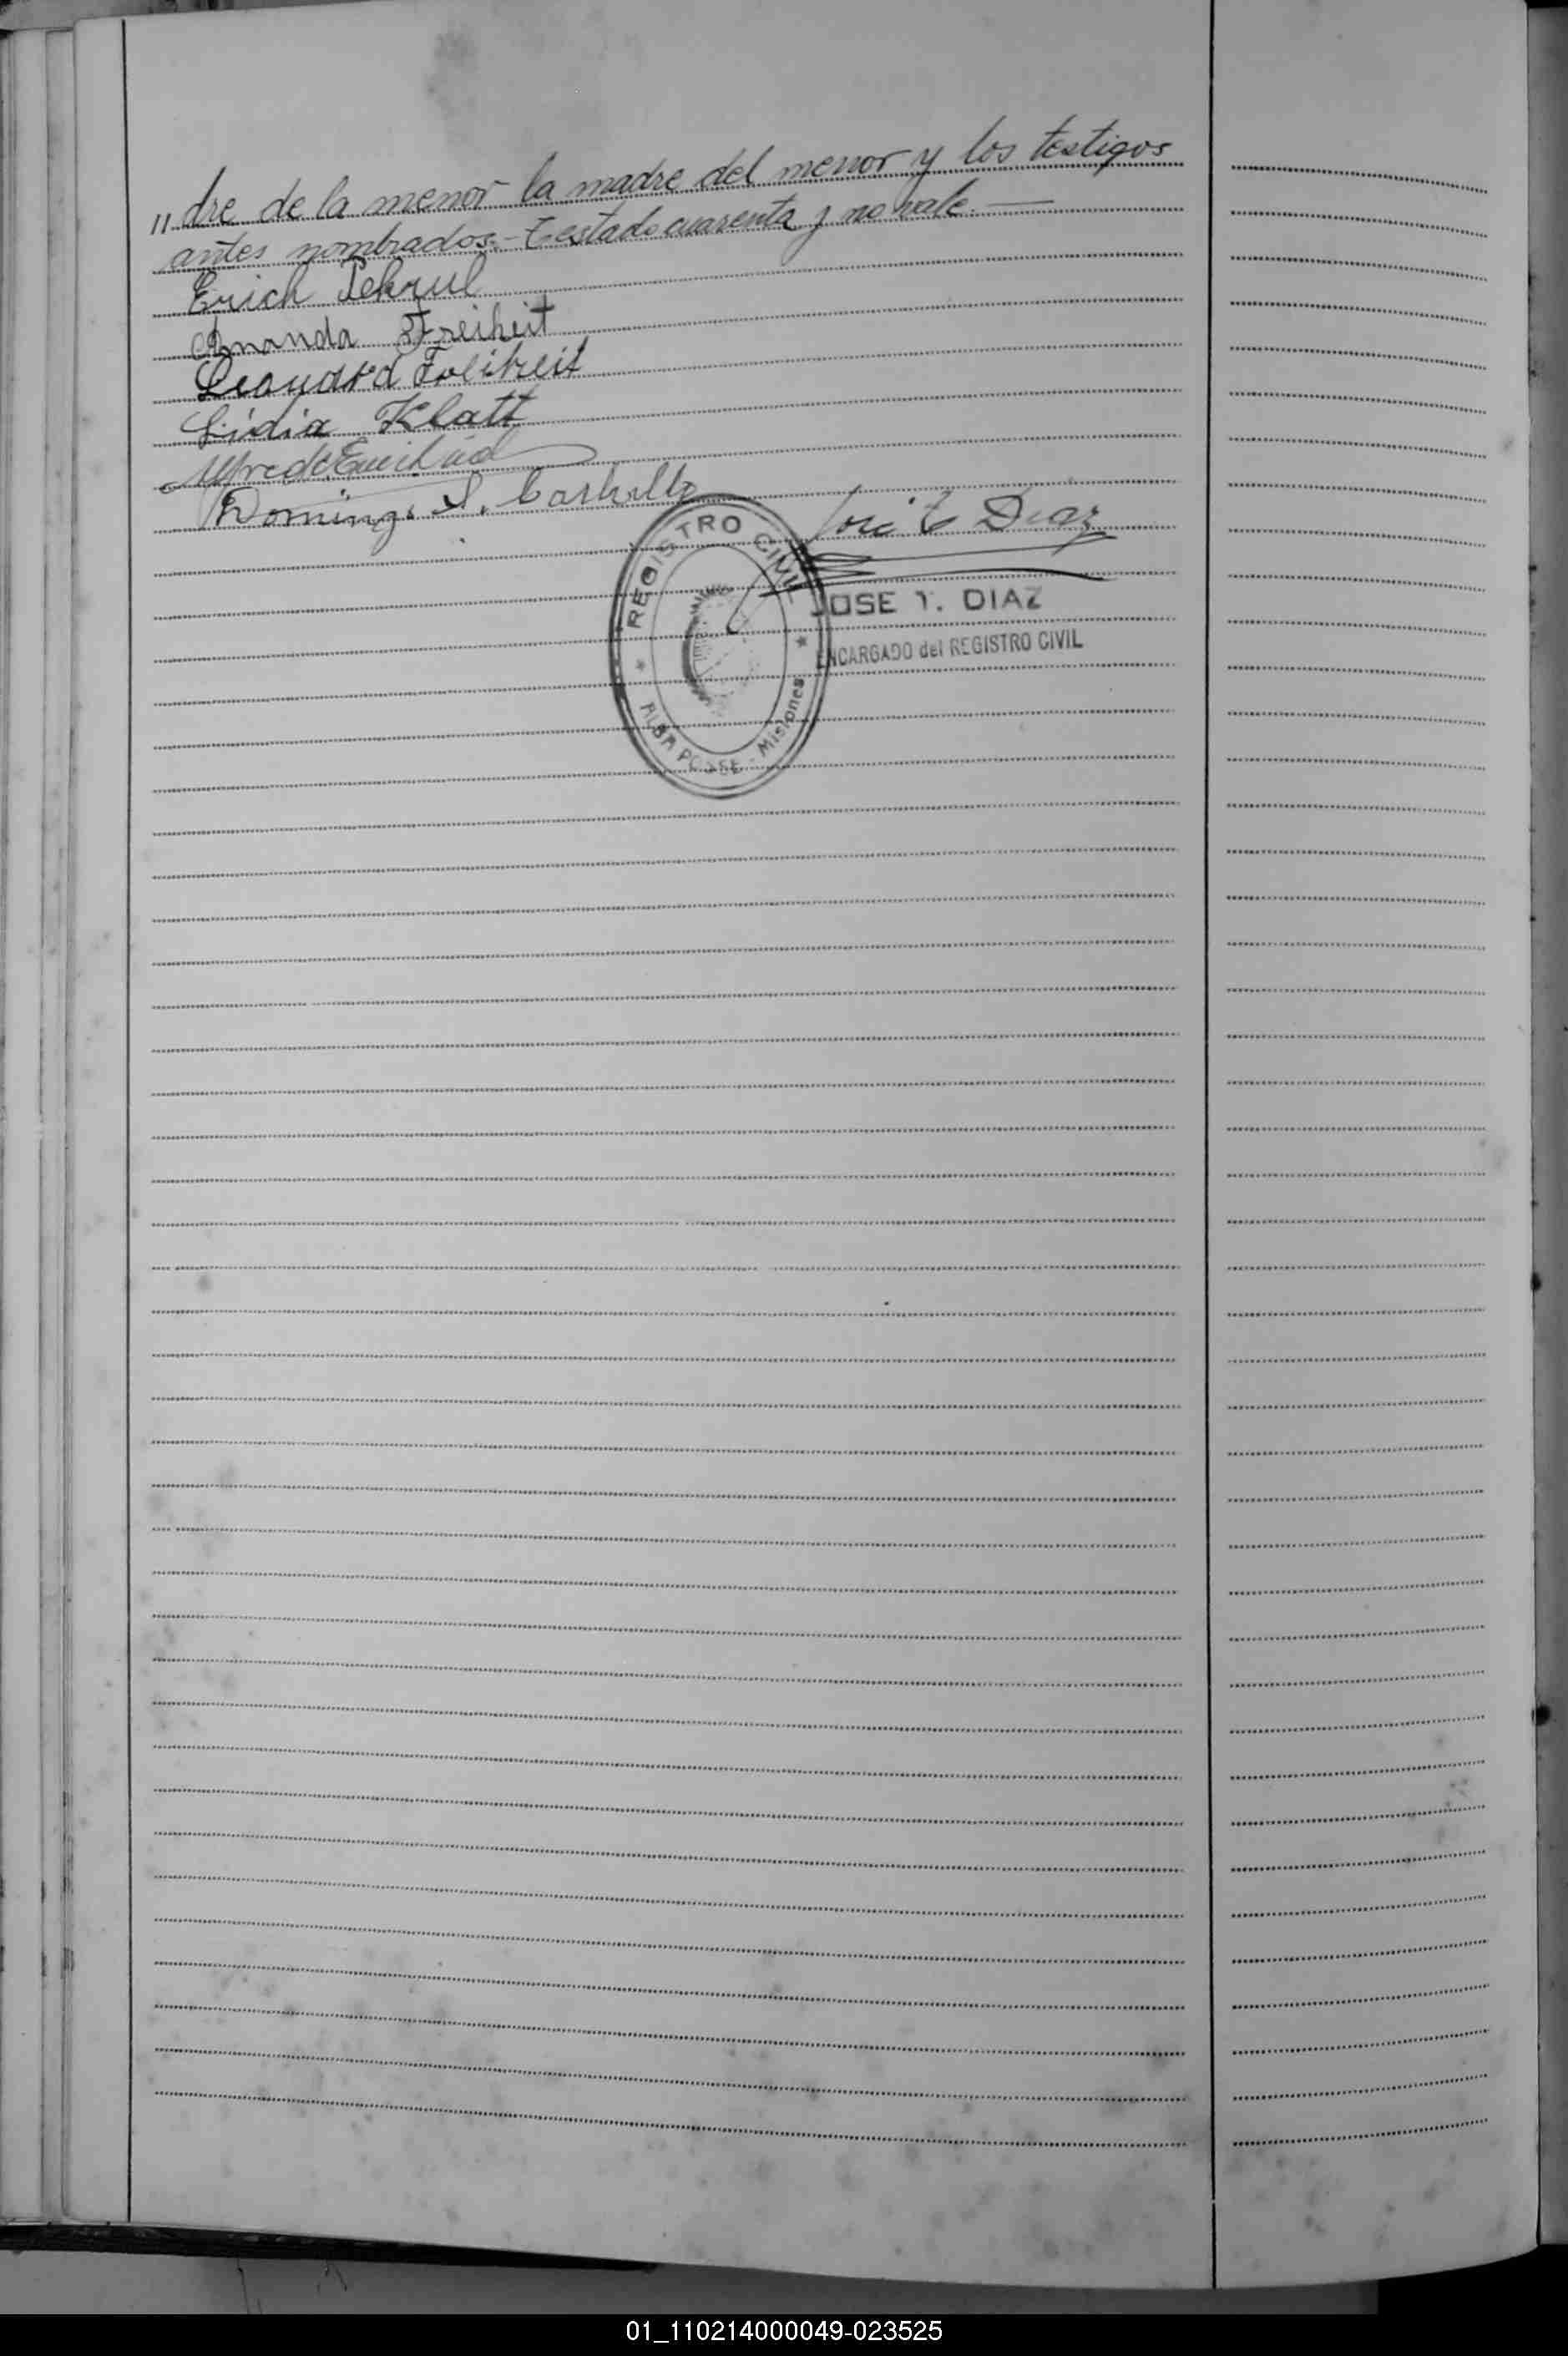 " dre de la menor la madre del menor y los testigos
antes nombrados.- Testado cuarenta y no vale.-
Erich Pekrul
Amanda Freiheit
Leonard Freiheit
Lidia Klatt
Alfredo
Domingo S. Castillo
José T Diaz
REGISTRO CIVIL
ALBA POSSE - Misiones
JOSE T. DIAZ
ENCARGADO del REGISTRO CIVIL
01_110214000049-023525